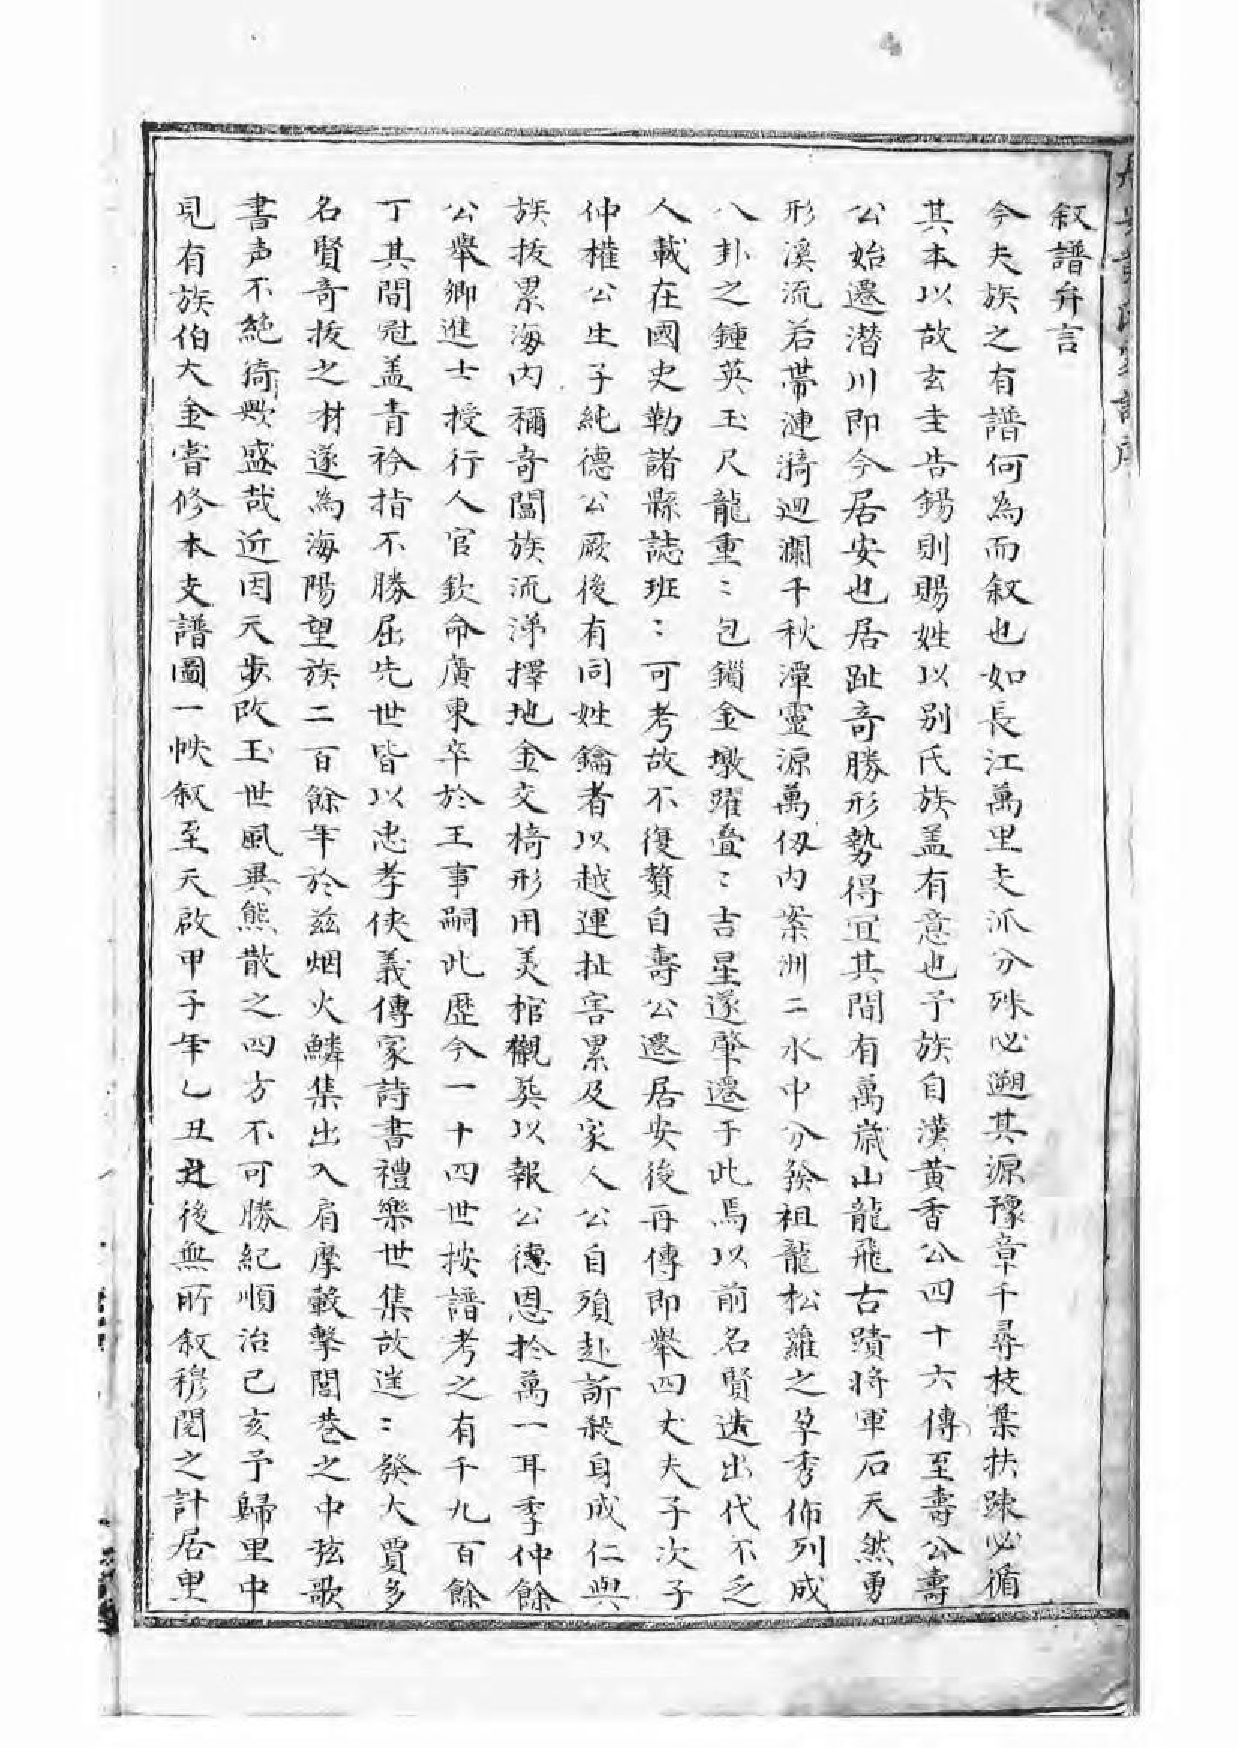 叙譜弁言
今夫族之有譜何為而叙也如長江萬里支派分殊必遡其源豫章千尋枝葉扶踈必循
其本以故玄圭告錫則賜姓以别氏族盖有意也予族自漢黄香公四十六傳至壽公壽
公始遷潜川即今居安也居趾竒勝形勢得宜其間有萬嵗山龍飛古蹟將軍石天然勇
形溪流若帶漣漪迴瀾千秋潭靈源萬仭内案洲二水中分発祖龍松蘿之孕秀佈列成
八卦之鍾英玉尺龍重〻包鎖金墩躍叠〻吉星遂肇遷于此焉以前名賢迭出代不乏
人載在國史勒諸縣誌班〻可考故不復贅自壽公遷居安後再傳即舉四丈夫子次子
仲權公生子純德公厥後有同姓鑰者以越運扯害累及家人公自殞赴訴殺身成仁與
族拔累海内稱竒闔族流涕擇地金交椅形用美棺櫬葬以報公德恩扵萬一耳季仲餘
公舉鄉進士授行人官欽命廣東卒於王事嗣此歴今一十四世按譜考之有千九百餘
丁其間冠盖青衿指不勝屈先世皆以忠孝侠義傳家詩書禮樂世集故迸〻發大賈多
名賢竒拔之材遂為海陽望族二百餘年於兹烟火鱗集出入肩摩轂擊閭巷之中弦歌
書声不絶猗歟盛哉近因天步改玉世風異態散之四方不可勝紀順治己亥予歸里中
見有族伯大金嘗修本支譜圖一帙叙至天啟甲子年乙丑丑後無所叙穆閱之計居里